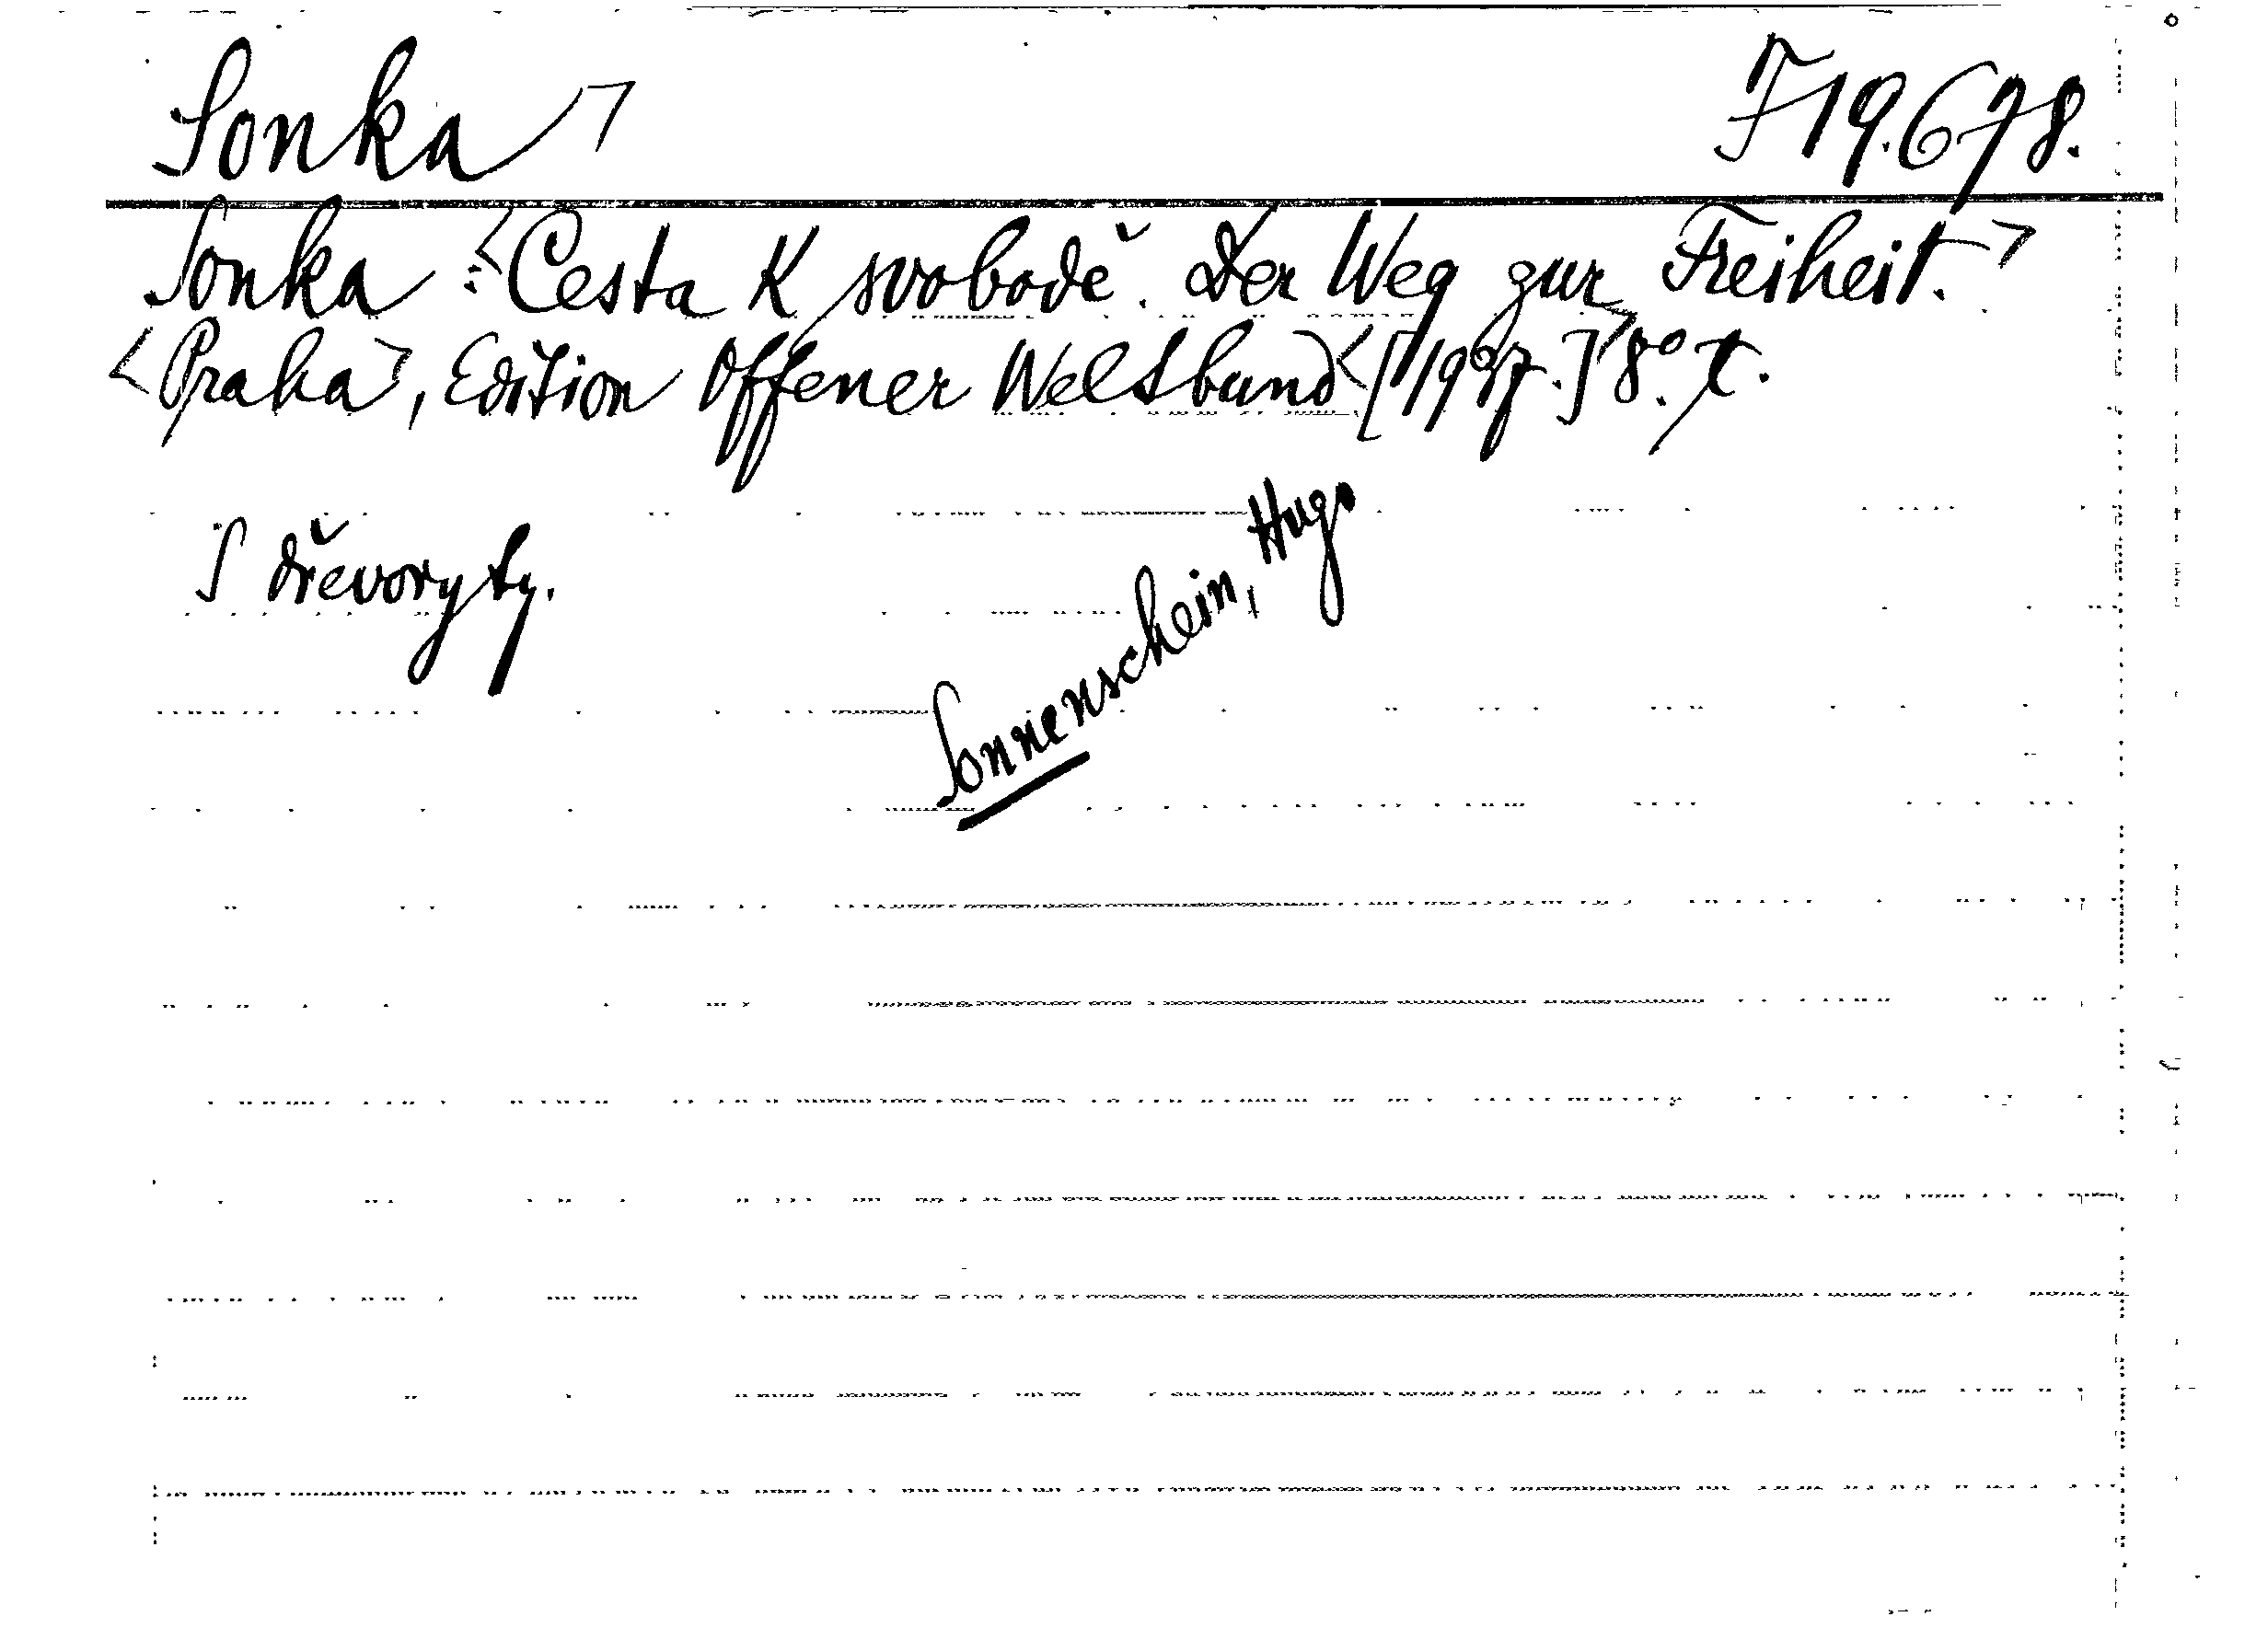 Sonka
F 19.678.
Sonka: <Cesta k svobodě. Der Weg zur Freiheit.>
<Praha>, Edition Offener Weltbund <[1937.]> 8°. t.
S dřevoryty.
Sonnenschein, Hugo